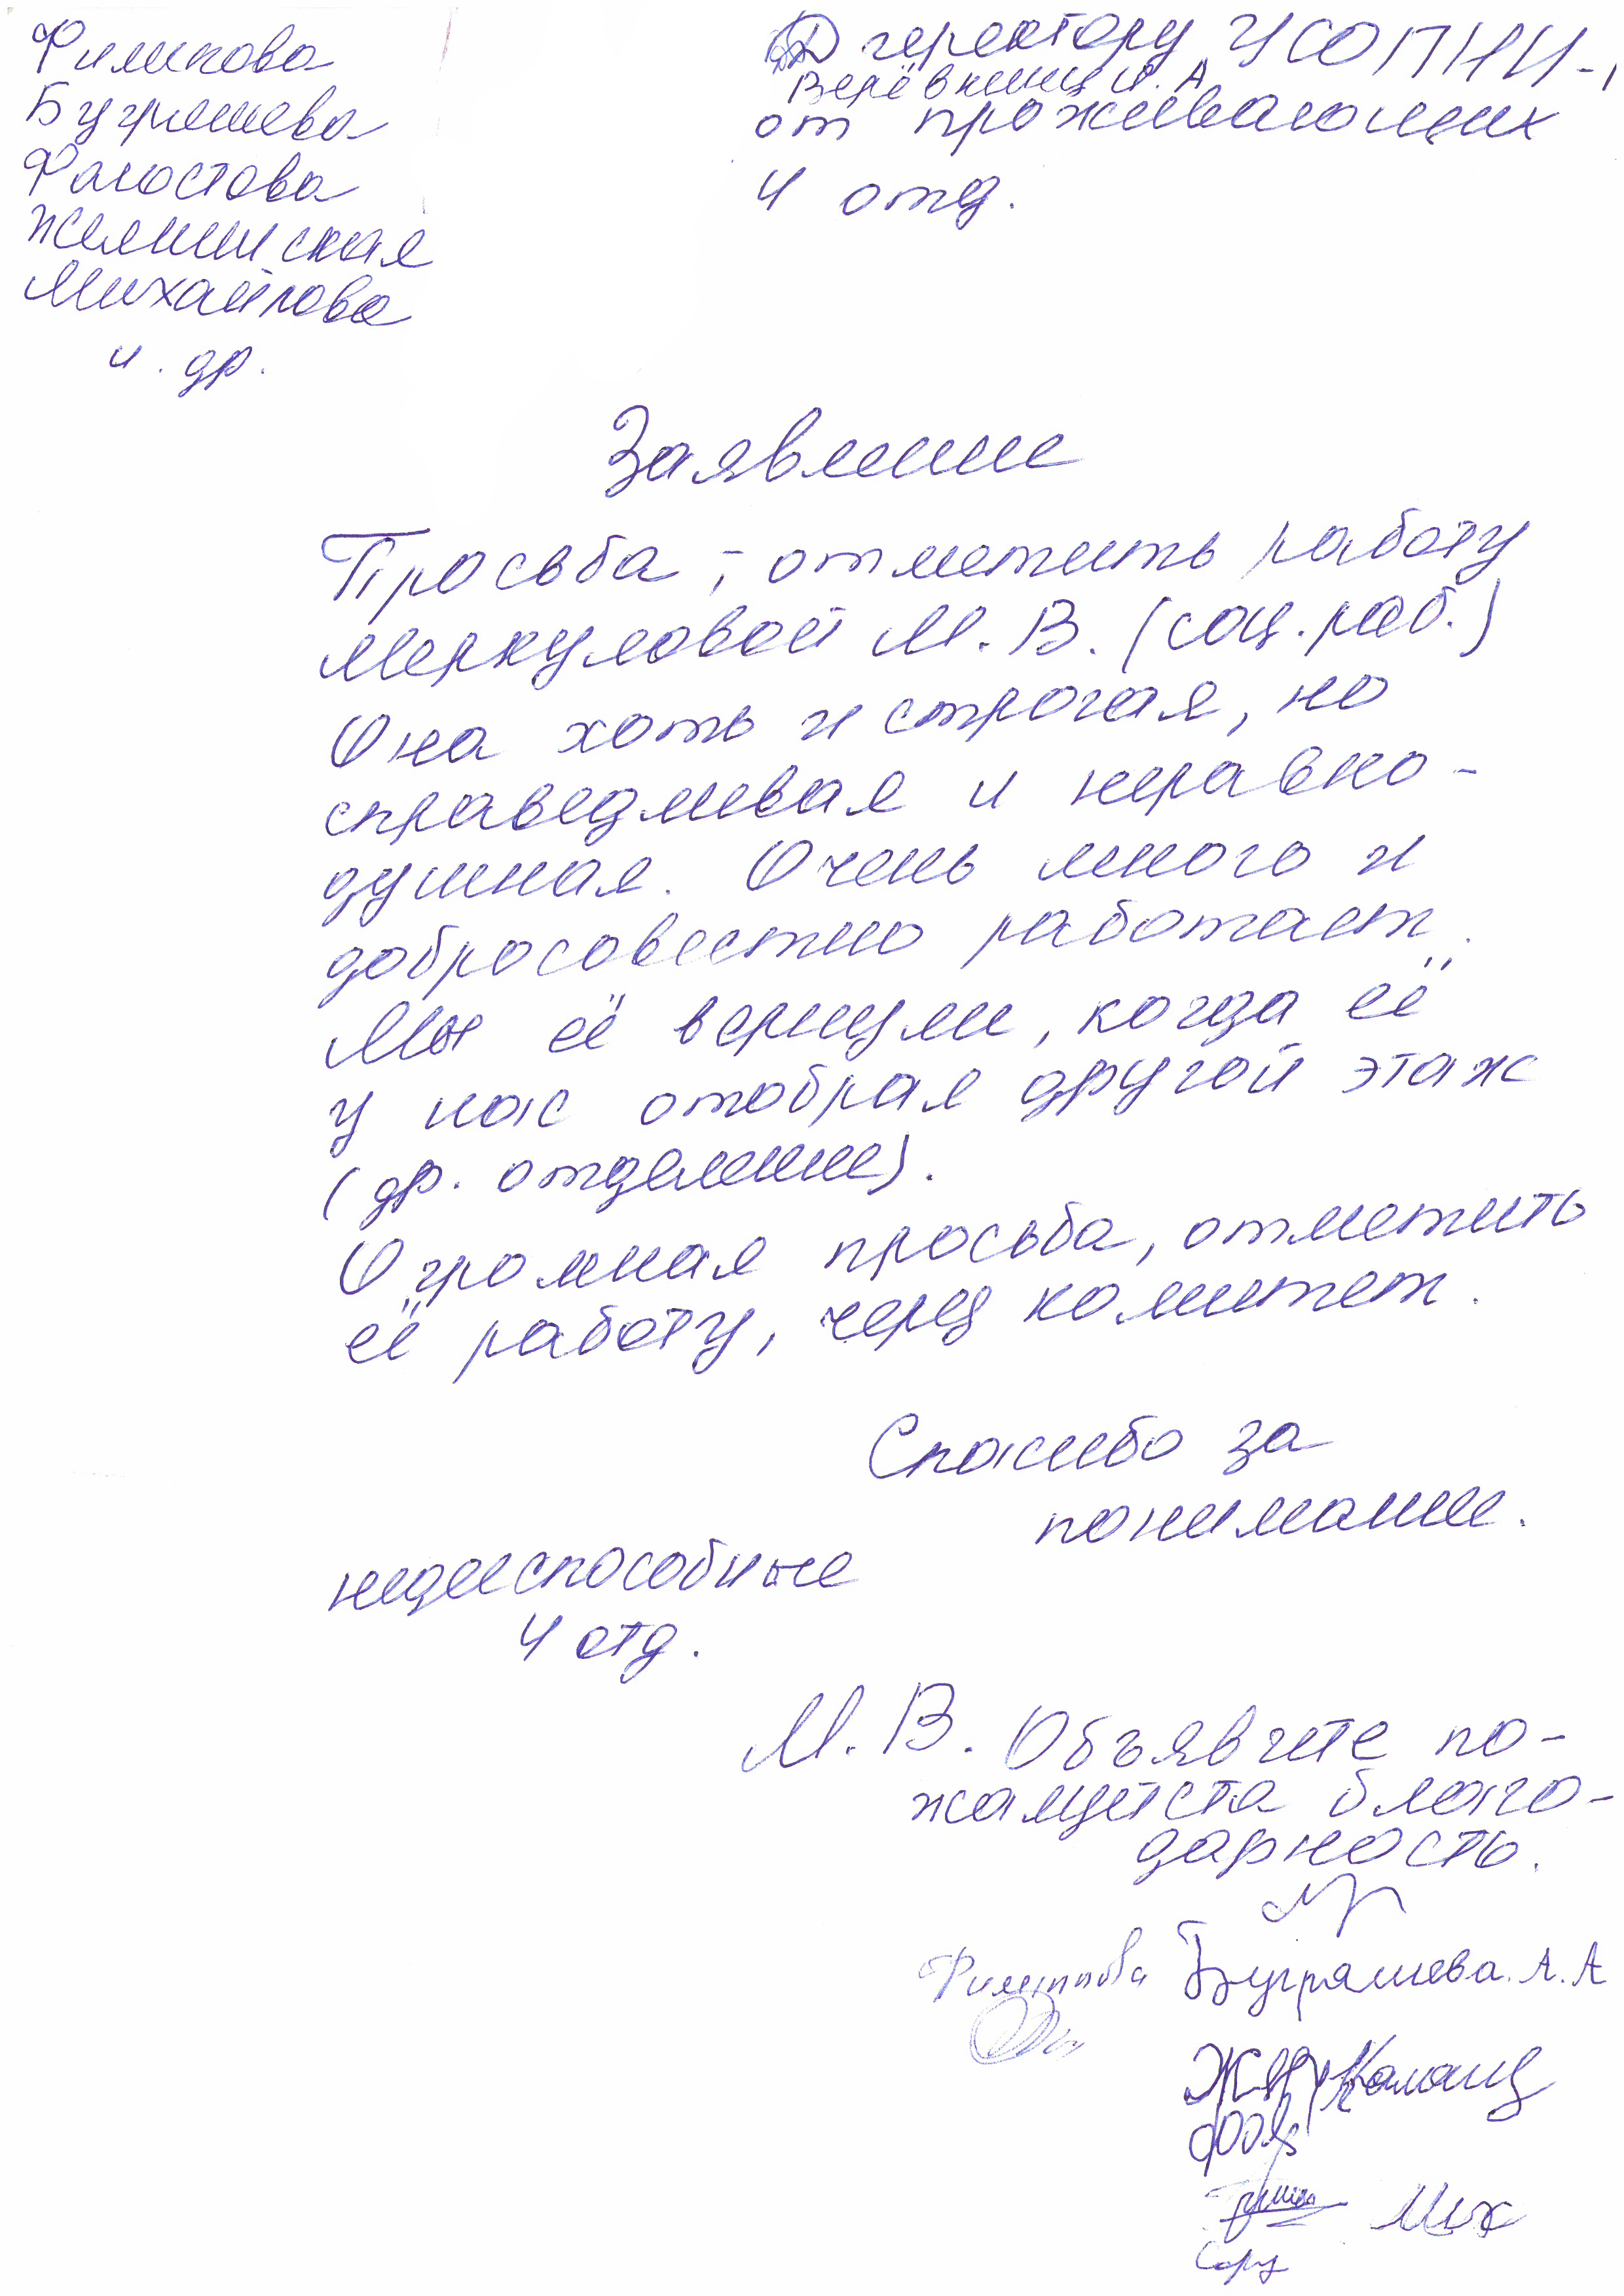 Филипова
Бугряшева
Фаюстова
Желтинская
Михайлова
и. др.
Директору ЧСОПНИ-1
Верёвкину И. А
от проживающих
4 отд.
Заявление
Просьба, - отметить работу
Меркуловой М. В. (соц. раб.)
Она хоть и строгая, но
справедливая и неравно-
душная. Очень много и
добросовестно работает.
Мы её вернули, когда её
у нас отобрал другой этаж
(др. отделение).
Огромная просьба, отметить
её работу, через комитет.
Спасибо за
понимание.
недееспособные
4 отд.
М. В. Объявите по-
жалуйста благо-
дарность.
Филиппова Бугряшева. А. А
Мих